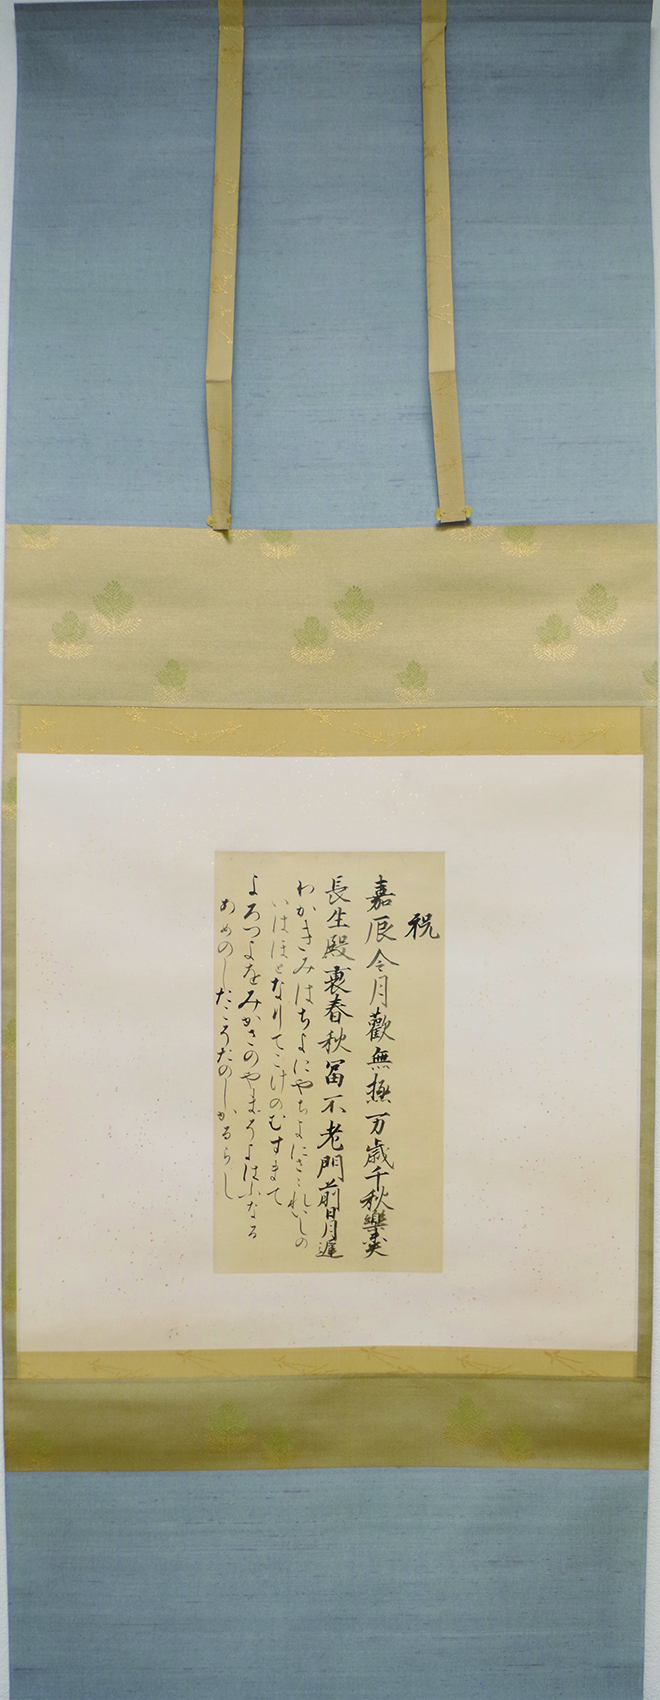 祝
嘉辰令月歡無極万歳千秋樂未央
長生殿裏春秋冨不老門前日月遲
わかきみはちよにやちよにさゝれいしの
いはほとなりてこけのむすまて
よろつよをみかさのやまそよはふなる
あめのしたこそたのしかるらし